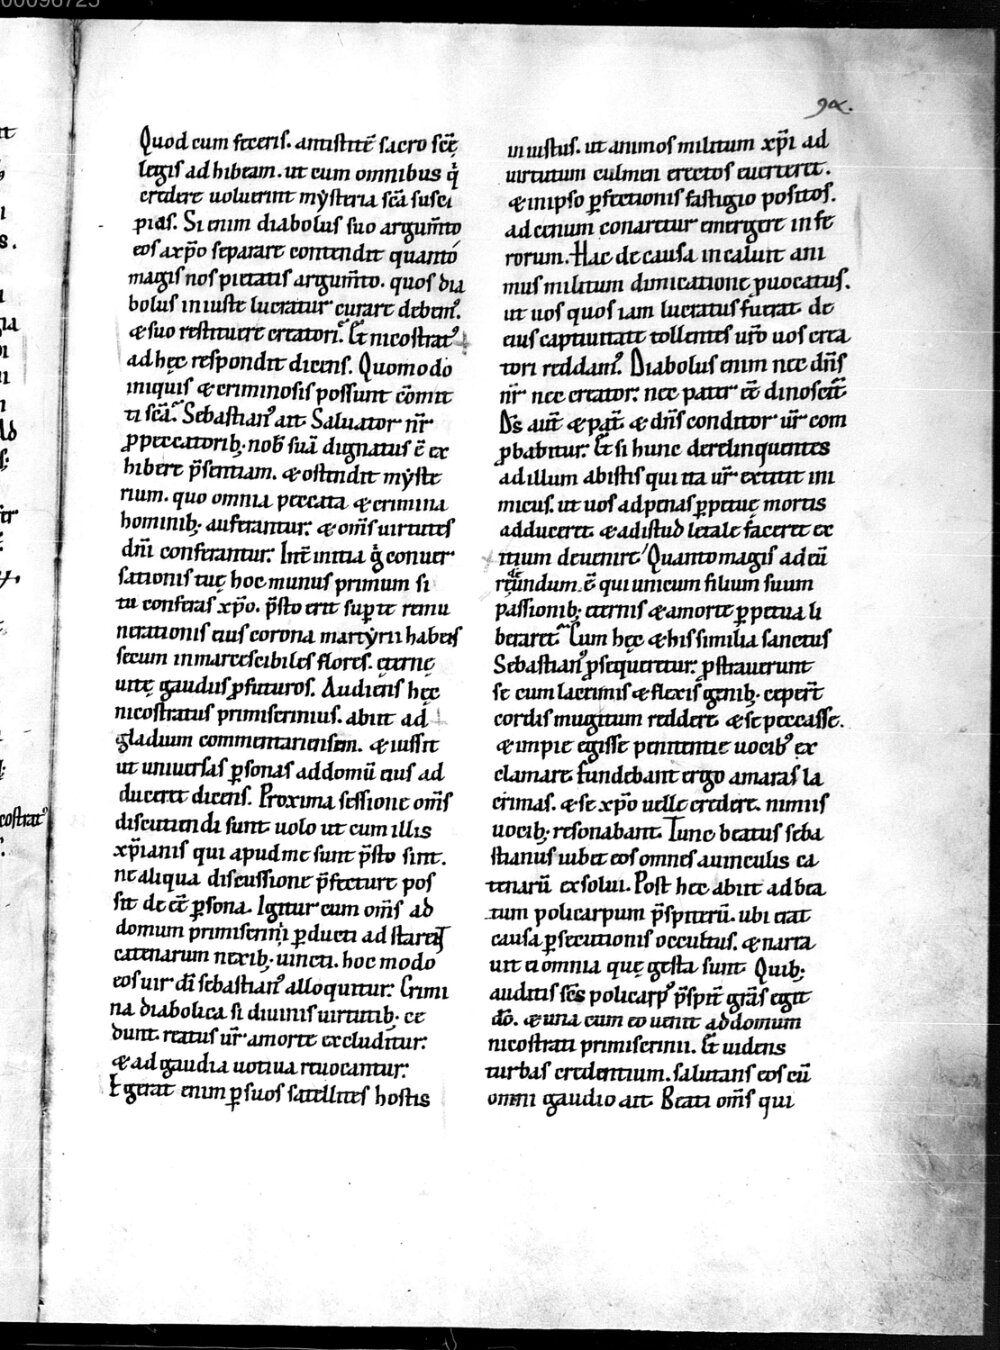 Quod cum feceris. antistitē sacro scē
legis adhibeam. ut cum omnibus q̇
credere uoluerint mẏsteria scā susci
pias. Si enim diabolus suo argum̄to
eos axp̄o separare contendit quanto
magis nos pietatis argum̄to. quos dia
bolus iniuste lucratur curare debem᾽.
& suo restituere creatori. Et nicostrat᾽
ad hęc respondit dicens. Quomodo
iniquis & criminosis possunt cōmit
ti scā. Sebastian᾽ ait Saluator nr̄
ꝓ peccatorib; nob̄ suā dignatus ē ex
hibere p̄sentiam. & ostendit mẏste
rium. quo omnia peccata & crimina
hominib; auferantur. & om̄s uirtutes
dn̄i conferantur. Int̄ initia g̊ conuer
sationis tuę hoc munus primum si
tu conferas xp̄o. p̄sto erit sup̱ te remu
nerationis eius corona martẏrii habens
secum inmarcescibiles flores. ęternę
uitę gaudiis ꝓfuturos. Audiens hęc
nicostratus primiscrinius. abiit ad
gladium commentariensem. & iussit
ut uniuersas ꝑsonas addomū eius ad
duceret dicens. Proxima sessione om̄s
discutiendi sunt uolo ut cum illis
xp̄ianis qui apud me sunt p̄sto sint.
ne aliqua discussione p̄fecture pos
sit deēē ꝑsona. Igitur cum om̄s ad
domum primiscrinii ꝑducti ad starent
catenarum nexib; uincti. hoc modo
eos uir dī sebastian᾽ alloquitur. Crimi
na diabolica si diuinis uirtutib; ce
dunt. reatus ur̄ amorte excluditur.
& ad gaudia uotiua reuocantur.
Egerat enim ꝑ suos satellites hostis
iniustus. ut animos militum xp̄i ad
uirtutum culmen erectos euerteret.
& inipso ꝑfectionis fastigio positos.
ad cenum conaretur emergere infe
rorum. Hac de causa incaluit ani
mus militum dimicatione ꝓuocatus.
ut uos quos iam lucratus fuerat de
eius captiuitate tollentes ur̄o uos crea
tori reddam᾽. Diabolus enim nec dn̄s
nr̄ nec creator. nec pater ēē dinoscit̄
Ds̄ aut̄ & pat̄ & dn̄s conditor ur̄ com
ꝓbabitur. Et si hunc derelinquentes
ad illum abistis qui ita ur̄ extitit ini
micus. ut uos ad penas ꝑpetuę mortis
adduceret & ad istud letale facere ex
itium deuenire Quanto magis ad eū
redeundum. ē qui unicum filium suum
passionib; eternis & amorte ꝑpetua li
beraret. Cum hęc & his similia sanctus
Sebastian᾽ ꝓsequeretur. ꝓstrauerunt
se cum lacrimis & flexis genib; ceper̄t
cordis mugitum reddere & se peccasse.
& impie egisse penitentie uocib᾽ ex
clamare. fundebant ergo amaras la
crimas. & se xp̄o uelle credere. nimiis
uocib; resonabant. Tunc beatus seba
stianus iubet eos omnes auinculis ca
tenarū exsolui. Post hec abiit ad bea
tum policarpum p̄spiterū. ubi erat
causa ꝑsecutionis occultus. & narra
uit ei omnia quę gesta sunt. Quib;
auditis sc̄s policarp᾽ p̄spit̄ grās egit
dō. & una cum eo uenit ad domum
nicostrati primiscrinii. Et uidens
turbas credentium. salutans eos cū
omni gaudio ait. Beati om̄s qui